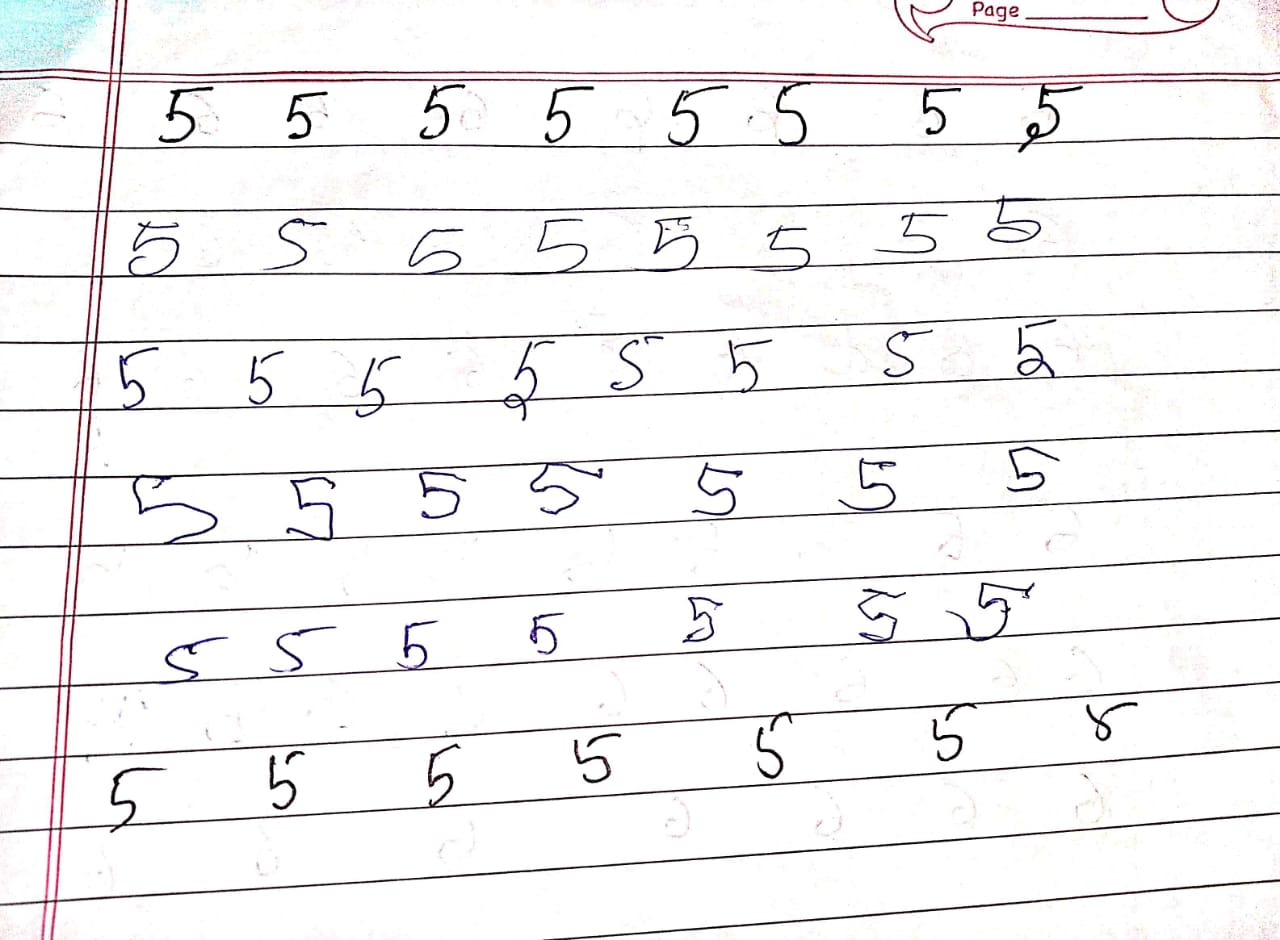 Page
5 5 5 5 5 5 5 5
5 5 5 5 5 5 5 5
5 5 5 5 5 5 5 5
5 5 5 5 5 5 5
5 5 5 5 5 5 5
5 5 5 5 5 5 5